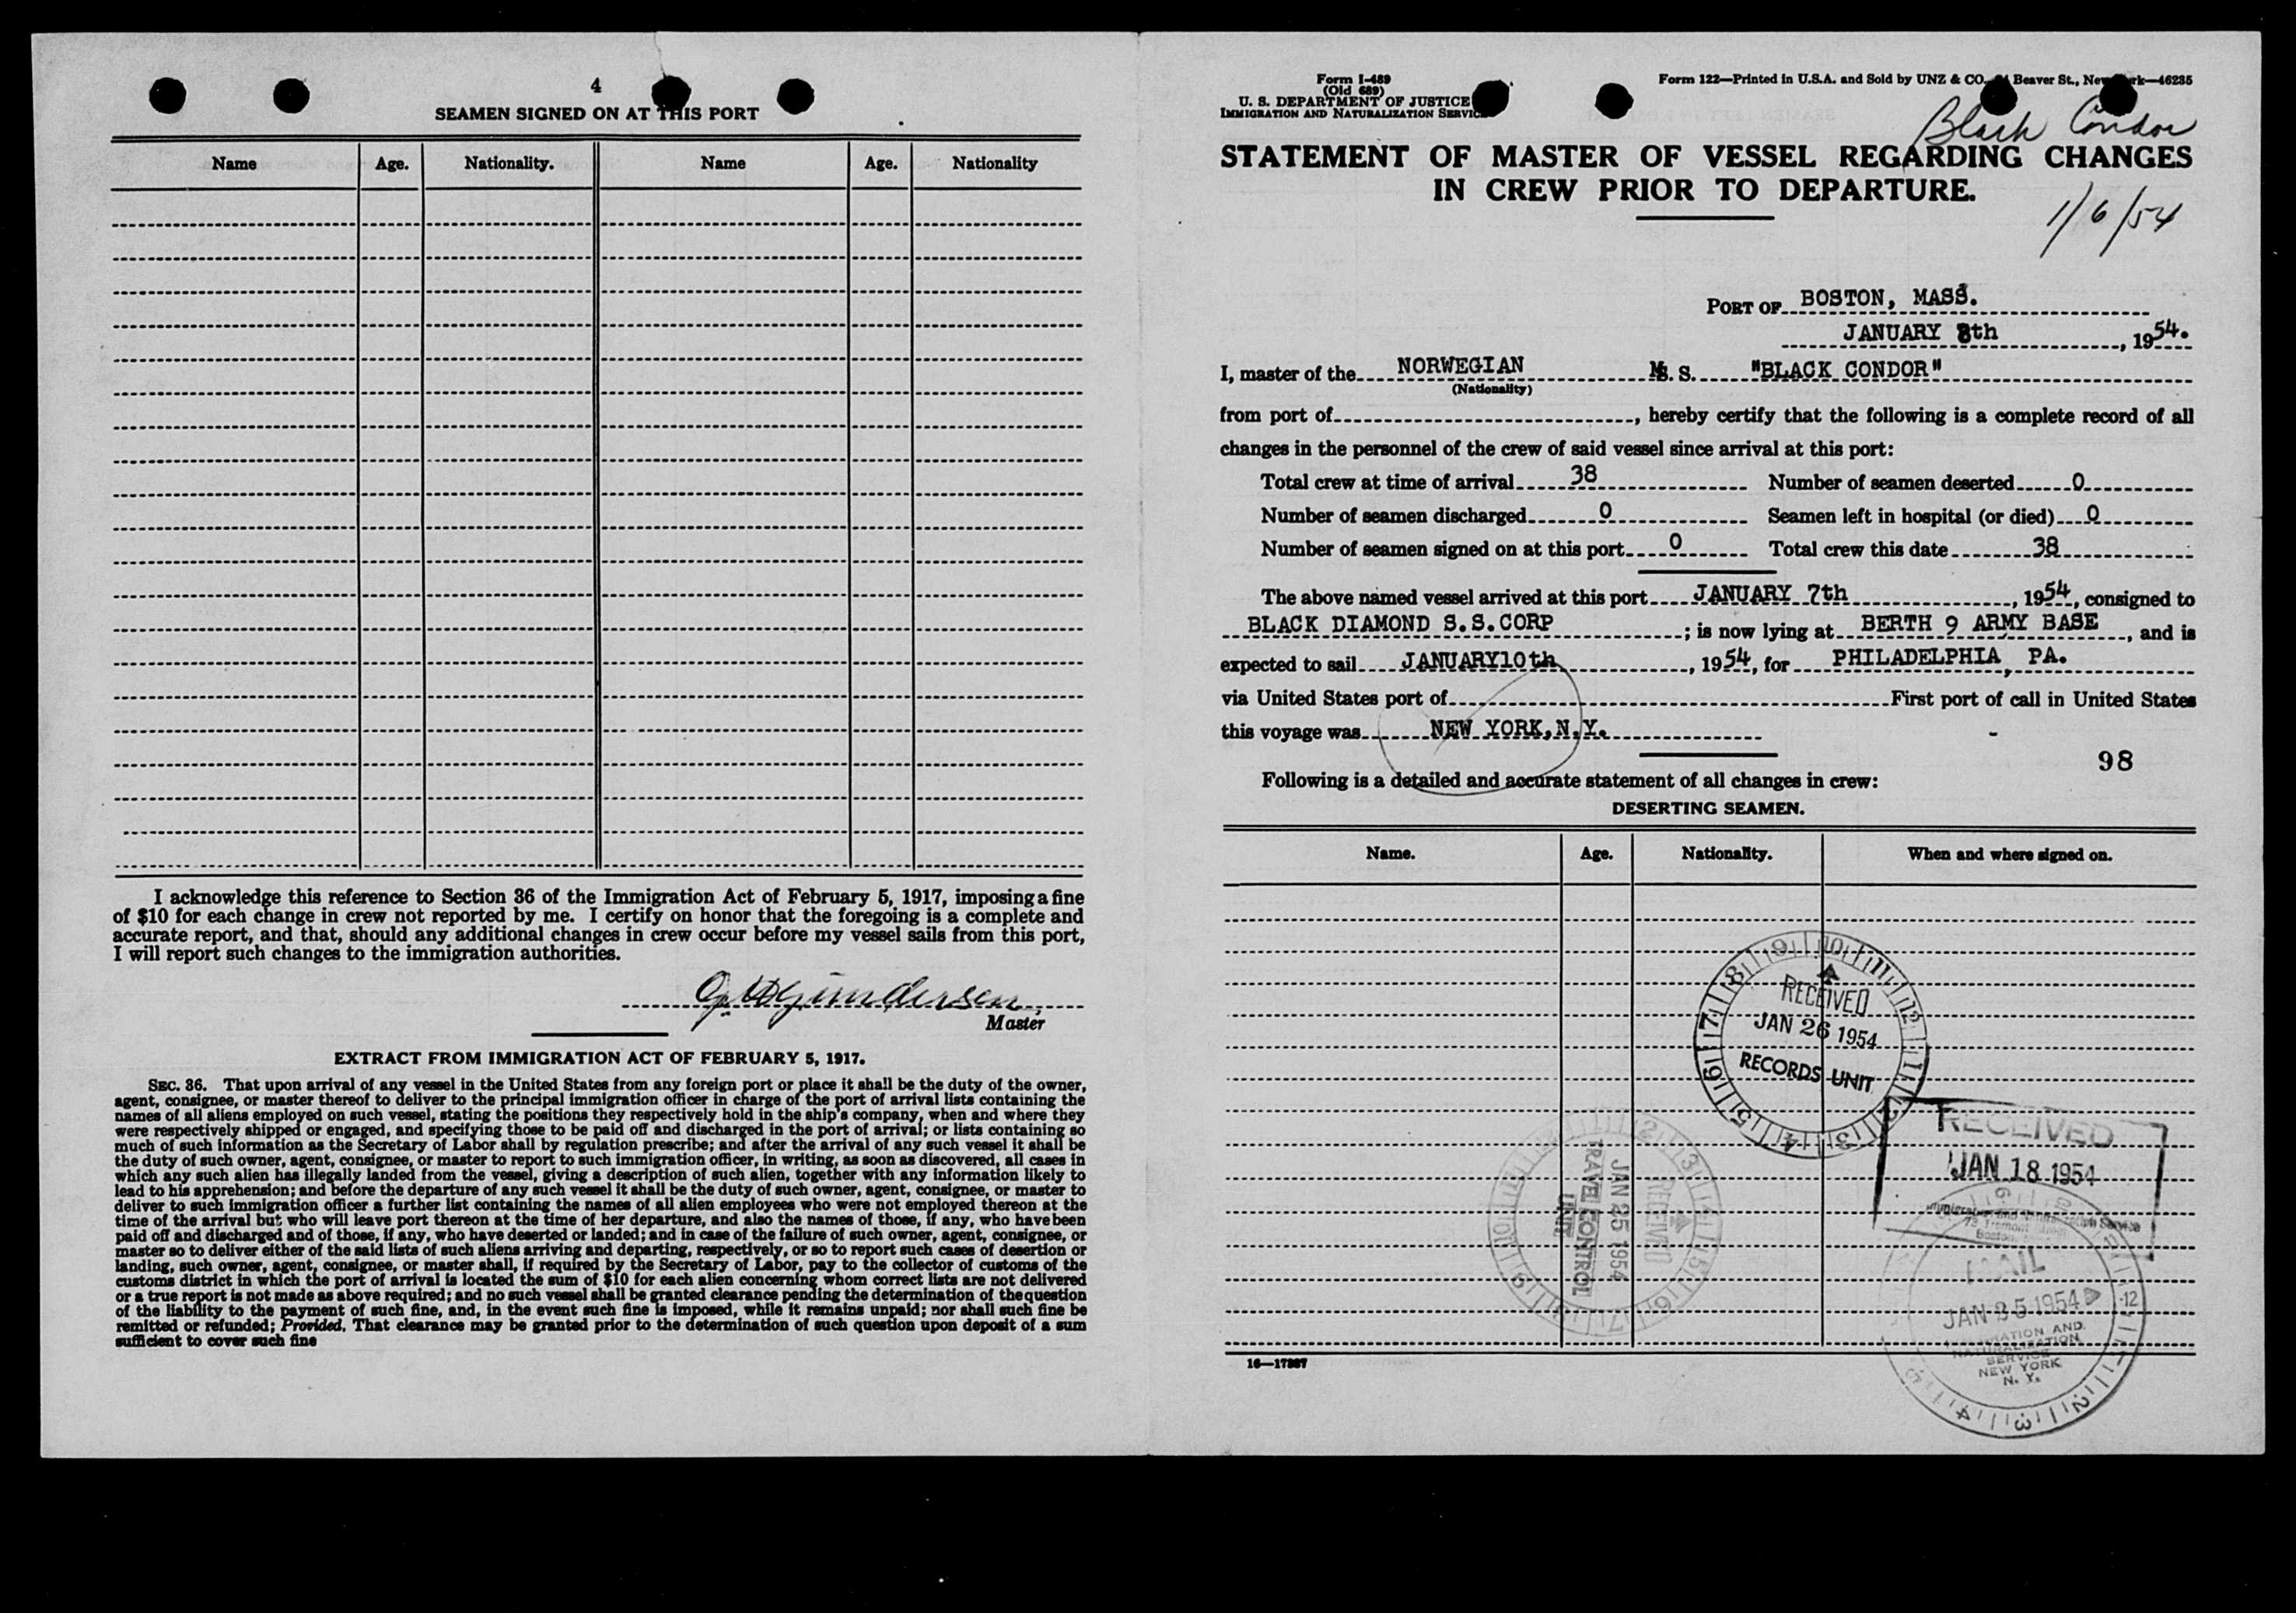 4
SEAMEN SIGNED ON AT THIS PORT
Name Age. Nationality. Name Age. Nationality
I acknowledge this reference to Section 36 of the Immigration Act of February 5, 1917, imposing a fine
of $10 for each change in crew not reported by me. I certify on honor that the foregoing is a complete and
accurate report, and that, should any additional changes in crew occur before my vessel sails from this port,
I will report such changes to the immigration authorities.
Gundersen
Master
EXTRACT FROM IMMIGRATION ACT OF FEBRUARY 5, 1917.
SEC. 36. That upon arrival of any vessel in the United States from any foreign port or place it shall be the duty of the owner,
agent, consignee, or master thereof to deliver to the principal immigration officer in charge of the port of arrival lists containing the
names of all aliens employed on such vessel, stating the positions they respectively hold in the ship's company, when and where they
were respectively shipped or engaged, and specifying those to be paid off and discharged in the port of arrival; or lists containing so
much of such information as the Secretary of Labor shall by regulation prescribe; and after the arrival of any such vessel it shall be
the duty of such owner, agent, consignee, or master to report to such immigration officer, in writing, as soon as discovered, all cases in
which any such alien has illegally landed from the vessel, giving a description of such alien, together with any information likely to
lead to his apprehension; and before the departure of any such vessel it shall be the duty of such owner, agent, consignee, or master to
deliver to such immigration officer a further list containing the names of all alien employees who were not employed thereon at the
time of the arrival but who will leave port thereon at the time of her departure, and also the names of those, if any, who have been
paid off and discharged and of those, if any, who have deserted or landed; and in case of the failure of such owner, agent, consignee, or
master so to deliver either of the said lists of such aliens arriving and departing, respectively, or so to report such cases of desertion or
landing, such owner, agent, consignee, or master shall, if required by the Secretary of Labor, pay to the collector of customs of the
customs district in which the port of arrival is located the sum of $10 for each alien concerning whom correct lists are not delivered
or a true report is not made as above required; and no such vessel shall be granted clearance pending the determination of the question
of the liability to the payment of such fine, and, in the event such fine is imposed, while it remains unpaid; nor shall such fine be
remitted or refunded; Provided, That clearance may be granted prior to the determination of such question upon deposit of a sum
sufficient to cover such fine
Form I-489
(Old 689)
U. S. DEPARTMENT OF JUSTICE
IMMIGRATION AND NATURALIZATION SERVICE
Form 122—Printed in U.S.A. and Sold by UNZ & CO. Beaver St., New York—46235
Black Condor
STATEMENT OF MASTER OF VESSEL REGARDING CHANGES
IN CREW PRIOR TO DEPARTURE.
1/6/54
PORT OF BOSTON, MASS.
JANUARY 8th, 1954.
I, master of the NORWEGIAN M. S. "BLACK CONDOR"
(Nationality)
from port of, hereby certify that the following is a complete record of all
changes in the personnel of the crew of said vessel since arrival at this port:
Total crew at time of arrival 38 Number of seamen deserted 0
Number of seamen discharged 0 Seamen left in hospital (or died) 0
Number of seamen signed on at this port 0 Total crew this date 38
The above named vessel arrived at this port JANUARY 7th, 1954, consigned to
BLACK DIAMOND S.S.CORP; is now lying at BERTH 9 ARMY BASE, and is
expected to sail JANUARY10th, 1954, for PHILADELPHIA, PA.
via United States port of First port of call in United States
this voyage was NEW YORK,N.Y.
98
Following is a detailed and accurate statement of all changes in crew:
DESERTING SEAMEN.
Name. Age. Nationality. When and where signed on.
RECEIVED
JAN 26 1954
RECORDS UNIT
RECEIVED
JAN 18 1954
Immigration and Naturalization Service
RECEIVED
JAN 25 1954
TRAVEL CONTROL
UNIT
MAIL
JAN 25 1954
IMMIGRATION AND
NATURALIZATION
SERVICE
NEW YORK
N. Y.
16—17387